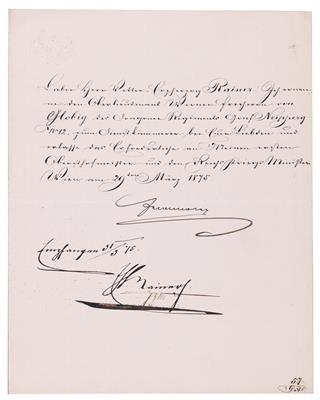 Lieber Herr Vetter Erzherzog Rainer. Ich ernen-
ne den Oberlieutenant Werner Freiherrn von
Globig des Dragoner Regiments Graf Neipperg
No 12. zum Dienstkämmerer bei Euer Liebden und
erlasse das Erforderliche an Meinen ersten
Obersthofmeister und den Reichs-Kriegs-Minister.
Wien am 29ten März 1875
Empfangen 31/3 75.
EH Rainer